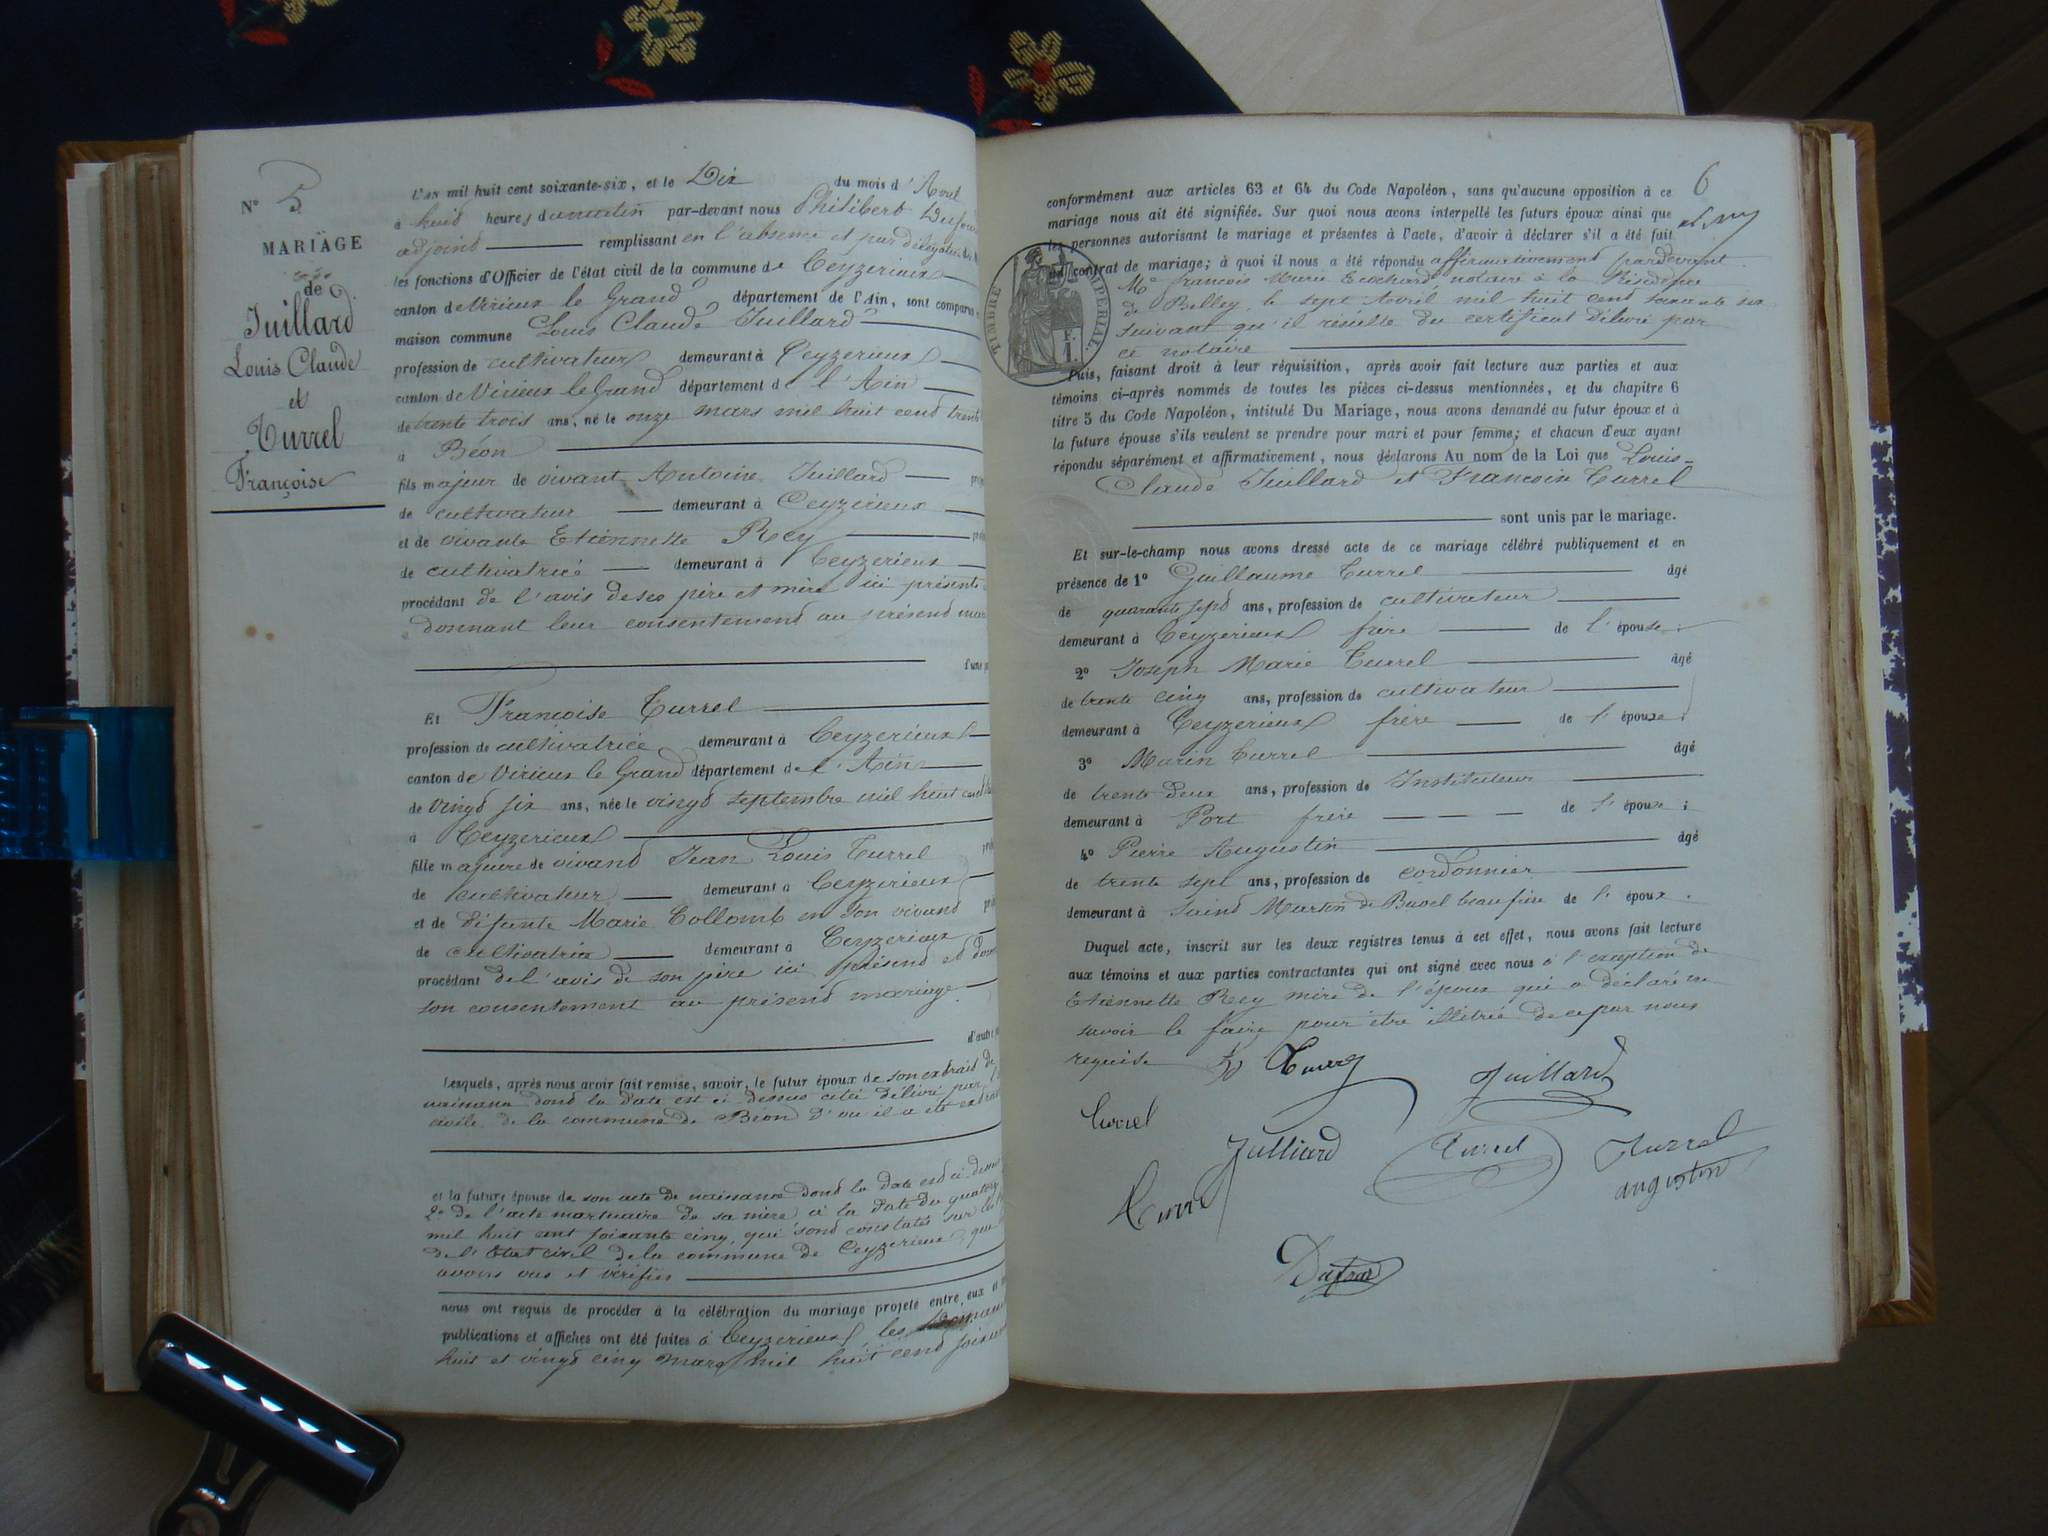 N° 5
MARIAGE
de
Juillard
Louis Claude
et
Turrel
Françoise
L'an mil huit cent soixante-six, et le Dix du mois d'Avril
à huit heures du matin par-devant nous Philibert
adjoint remplissant en l'absence et par délégation
les fonctions d'Officier de l'état civil de la commune de Ceyzerieux
canton de Virieux le Grand département de l'Ain, sont comparus
maison commune Louis Claude Juillard
profession de cultivateur demeurant à Ceyzerieux
canton de Virieux le Grand département de l'Ain
de trente trois ans, né le onze mars mil huit cent trente
à Béon
fils majeur de vivant Antoine Juillard
de cultivateur demeurant à Ceyzerieux
et de vivante Etiennette Rey
de cultivatrice demeurant à Ceyzerieux
procédant de l'avis de ses père et mère ici présents
donnant leur consentement au présent
d'une
Et Françoise Turrel
profession de cultivatrice demeurant à Ceyzerieux
canton de Virieux le Grand département de l'Ain
de vingt six ans, née le vingt septembre mil huit cent
à Ceyzerieux
fille majeure de vivant Jean Louis Turrel
de cultivateur demeurant à Ceyzerieux
et de défunte Marie Collomb en son vivant
de cultivatrice demeurant à Ceyzerieux
procédant de l'avis de son père ici présent et
son consentement au présent mariage
d'autre
Lesquels, après nous avoir fait remise, savoir, le futur époux de son extrait de
naissance dont la date est ci dessus citée délivré par
civile de la commune de Béon d'où il a été
et la future épouse de son acte de naissance dont la date est ci dessus
2° de l'acte mortuaire de sa mère à la date du
mil huit cent soixante cinq, qui sont constatés sur les
de l'Etat civil de la commune de Ceyzerieux, que
avons vus et vérifiés
nous ont requis de procéder à la célébration du mariage projeté entre eux et
publications et affiches ont été faites à Ceyzerieux les
huit et vingt cinq mars mil huit cent
6
conformément aux articles 63 et 64 du Code Napoléon, sans qu'aucune opposition à ce
mariage nous ait été signifiée. Sur quoi nous avons interpellé les futurs époux ainsi que
les personnes autorisant le mariage et présentes à l'acte, d'avoir à déclarer s'il a été fait
un contrat de mariage; à quoi il nous a été répondu affirmativement pardevant
Me François Marie Trochard, notaire à la Résidence
de Belley, le sept Avril mil huit cent soixante six
suivant qu'il résulte du certificat délivré par
ce notaire
TIMBRE IMPERIAL.
1 F.
Puis, faisant droit à leur réquisition, après avoir fait lecture aux parties et aux
témoins ci-après nommés de toutes les pièces ci-dessus mentionnées, et du chapitre 6
titre 5 du Code Napoléon, intitulé Du Mariage, nous avons demandé au futur époux et à
la future épouse s'ils veulent se prendre pour mari et pour femme; et chacun d'eux ayant
répondu séparément et affirmativement, nous déclarons Au nom de la Loi que Louis-
Claude Juillard et Françoise Turrel
sont unis par le mariage.
Et sur-le-champ nous avons dressé acte de ce mariage célébré publiquement et en
présence de 1° Guillaume Turrel âgé
de quarante sept ans, profession de cultivateur
demeurant à Ceyzerieux frère de l'épouse;
2° Joseph Marie Turrel âgé
de trente cinq ans, profession de cultivateur
demeurant à Ceyzerieux frère de l'épouse;
3° Marin Turrel âgé
de trente deux ans, profession de Instituteur
demeurant à Port frère de l'épouse;
4° Pierre Augustin âgé
de trente sept ans, profession de cordonnier
demeurant à Saint Martin de Bavel beaufrère de l'époux.
Duquel acte, inscrit sur les deux registres tenus à cet effet, nous avons fait lecture
aux témoins et aux parties contractantes qui ont signé avec nous à l'exception de
Etiennette Rey mère de l'époux qui a déclaré ne
savoir le faire pour être illitrée de ce par nous
requise
Juillard
Turrel
Julliard
Turrel
Turrel
augustin